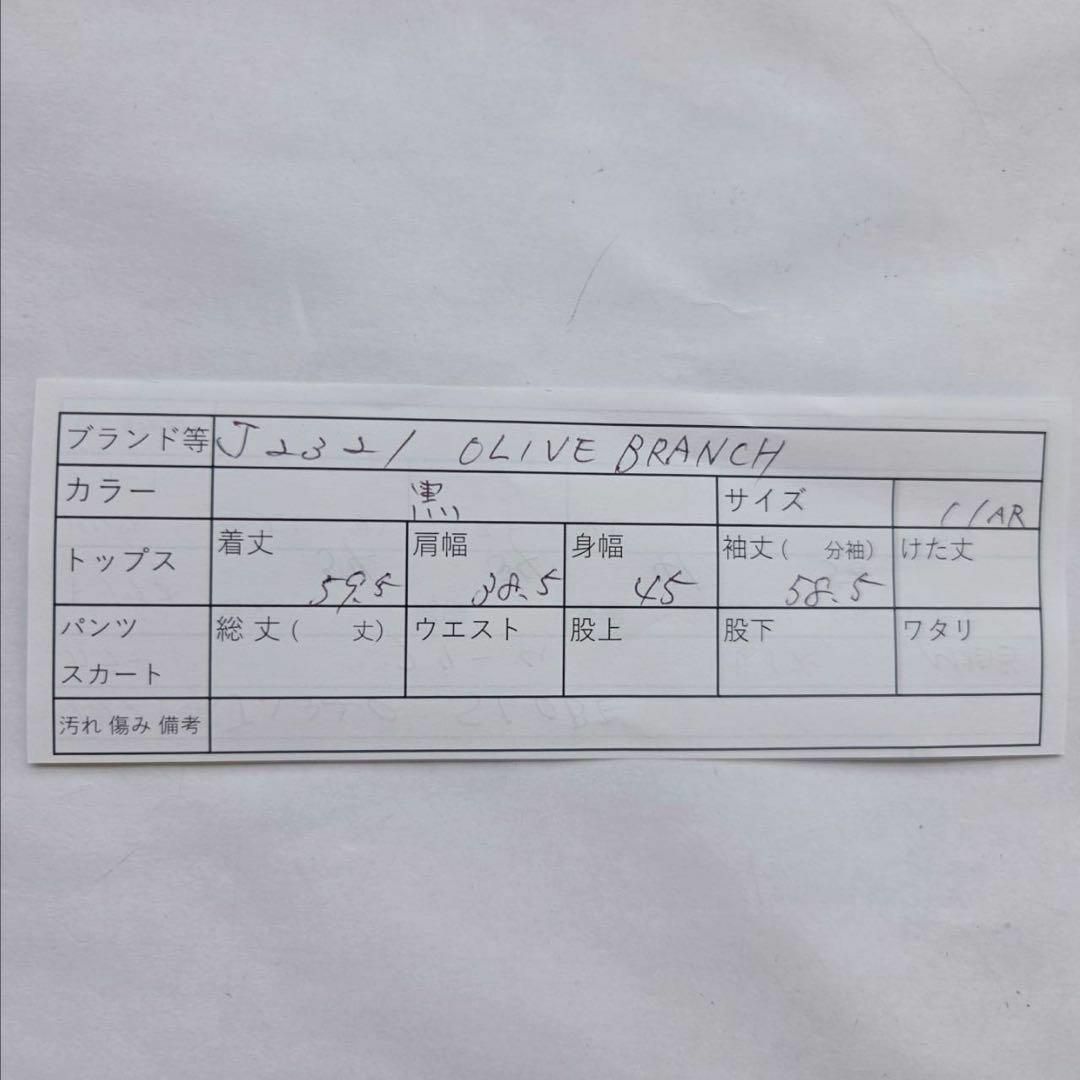 ブランド等 J2321 OLIVE BRANCH
カラー 黒 サイズ 11AR
トップス 着丈 59.5 肩幅 38.5 身幅 45 袖丈( 分袖) 58.5 けた丈
パンツ 総丈( 丈) ウエスト 股上 股下 ワタリ
スカート
汚れ 傷み 備考